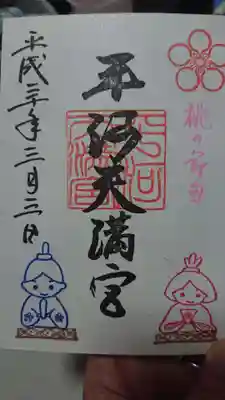 桃の節句
平河天満宮
平成三十年三月三日